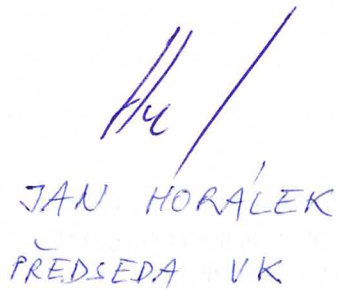 JAN HORÁLEK
PŘEDSEDA VK